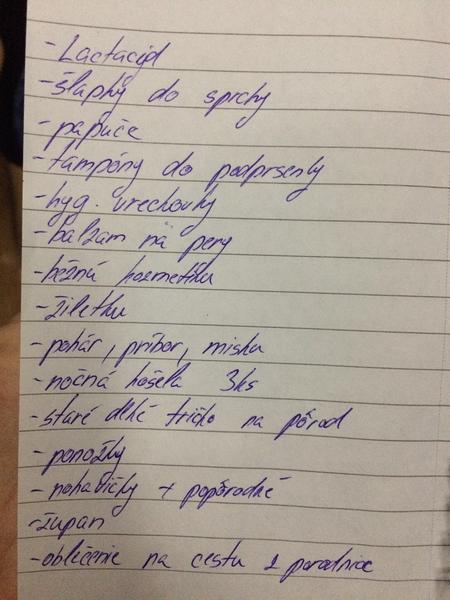 - Lactacyd
- šlapky do sprchy
- papuče
- tampóny do podprsenky
- hyg. vreckovky
- balzam na pery
- bežná kozmetika
- žiletka
- pohár, príbor, miska
- nočná košela 3ks
- staré dlhé tričko na pôrod
- ponožky
- nohavičky + popôrodné
- župan
- oblečenie na cestu z porodnice